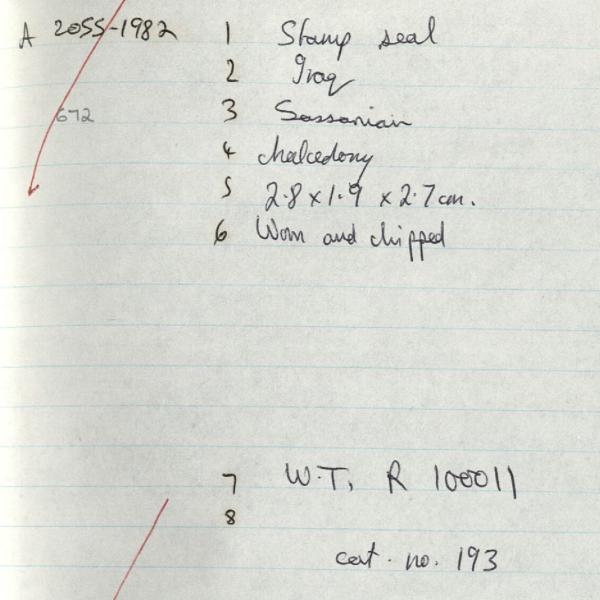 A 2055-1982 1 Stamp seal
2 Iraq
672 3 Sassanian
4 chalcedony
5 2.8 x 1.9 x 2.7 cm.
6 Worn and chipped
7 W.T. R 100011
8
cat. no. 193